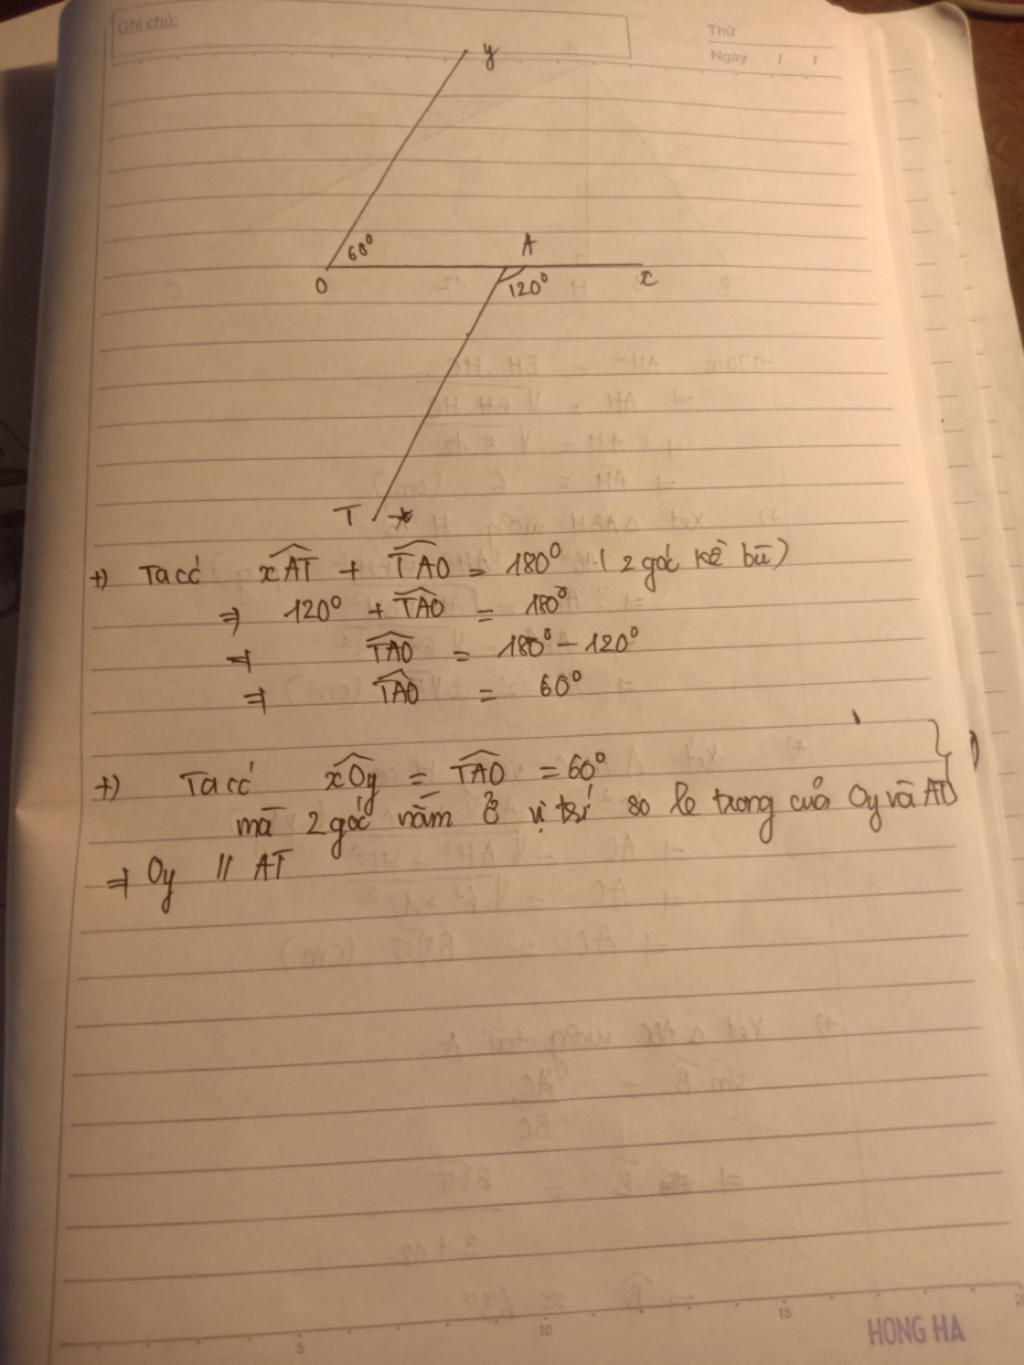 Ghi chú:
Thứ
Ngày / /
y
60°
A
O
120°
x
T
+) Ta có xAT + TAO = 180° (2 góc kề bù)
⇒ 120° + TAO = 180°
⇒ TAO = 180° - 120°
⇒ TAO = 60°
+) Ta có xOy = TAO = 60°
mà 2 góc nằm ở vị trí so le trong của Oy và AT
⇒ Oy // AT
5 10 15
HONG HA